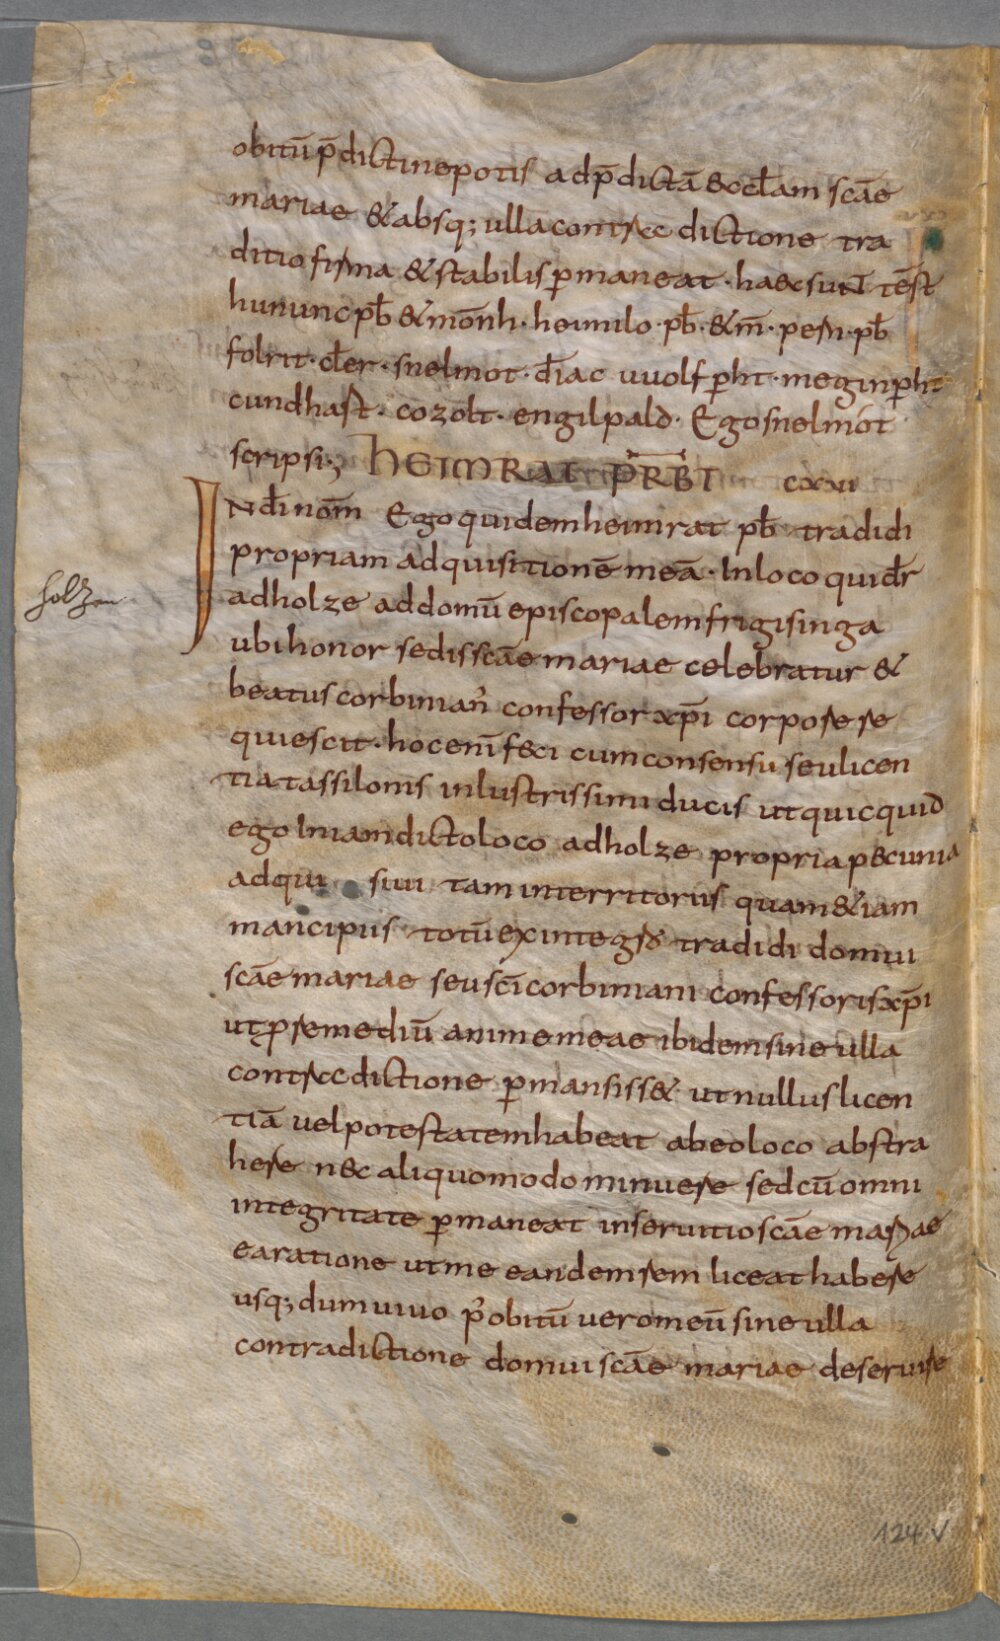 obitū p̄dicti nepotis ad p̄dictā &ccl̄am scāe
mariae & absq; ulla contradictione tra
ditio firma & stabilis p̱maneat · haec suNT tēst
hununc pb̄ & mōnh · heimilo · pb̄ · & m̄ · peri · pb̄
folrit · cl̄er · snelmot · d̄iac uuolfp̱ht · meginp̱ht
cundhart · cozolt · engilpald · Ego snelmot
scripsi;
HEIMRAT PR̄BI CXXII
IN dī nom̄ Ego quidem heimrat pb̄ tradidi
propriam adquisitionē meā · In loco qui dr̄
holzen
ad holze ad domū episcopalem frigisinga
ubi honor sedis scāe mariae celebratur &
beatus corbinian̄ confessor xp̄i corpore re
quiescit · hoc enī feci cum consensu seu licen
tia tassilonis inlustrissimi ducis ut quicquid
ego In iam dicto loco ad holze propria pecunia
adqui siui tam in territoriis quam &iam
mancipiis totū ex integro tradidi domui
scāe mariae seu scī corbiniani confessoris xp̄i
ut p̱ remediū anime meae ibidem sine ulla
contradictione p̱mansiss& ut nullus licen
tiā uel potestatem habeat ab eo loco abstra
here nec aliquo modo minuere sed cū omni
integritate p̱maneat in seruitio scāe mariae
ea ratione ut me eandem rem liceat habere
usq; dum uiuo p̓ obitū uero meū sine ulla
contradictione domui scāe mariae deseruire
124 v